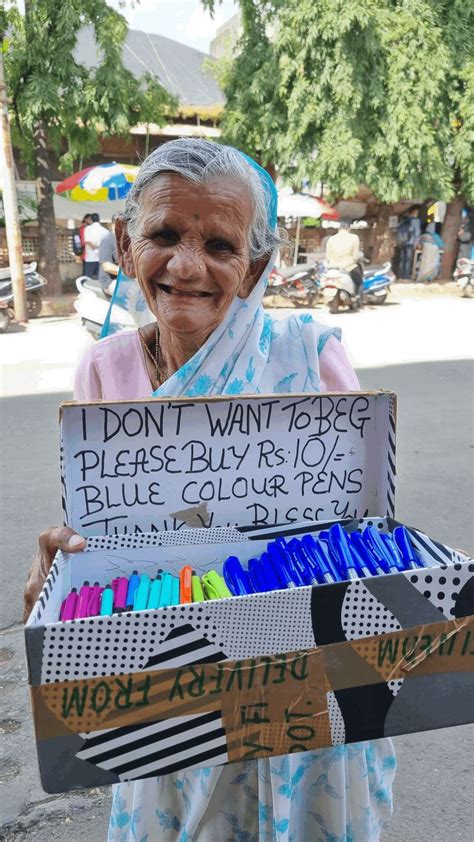 I DON'T WANT TO BEG
PLEASE BUY Rs. 10/-
BLUE COLOUR PENS
THANK YOU BLESS YOU
DELIVERY FROM